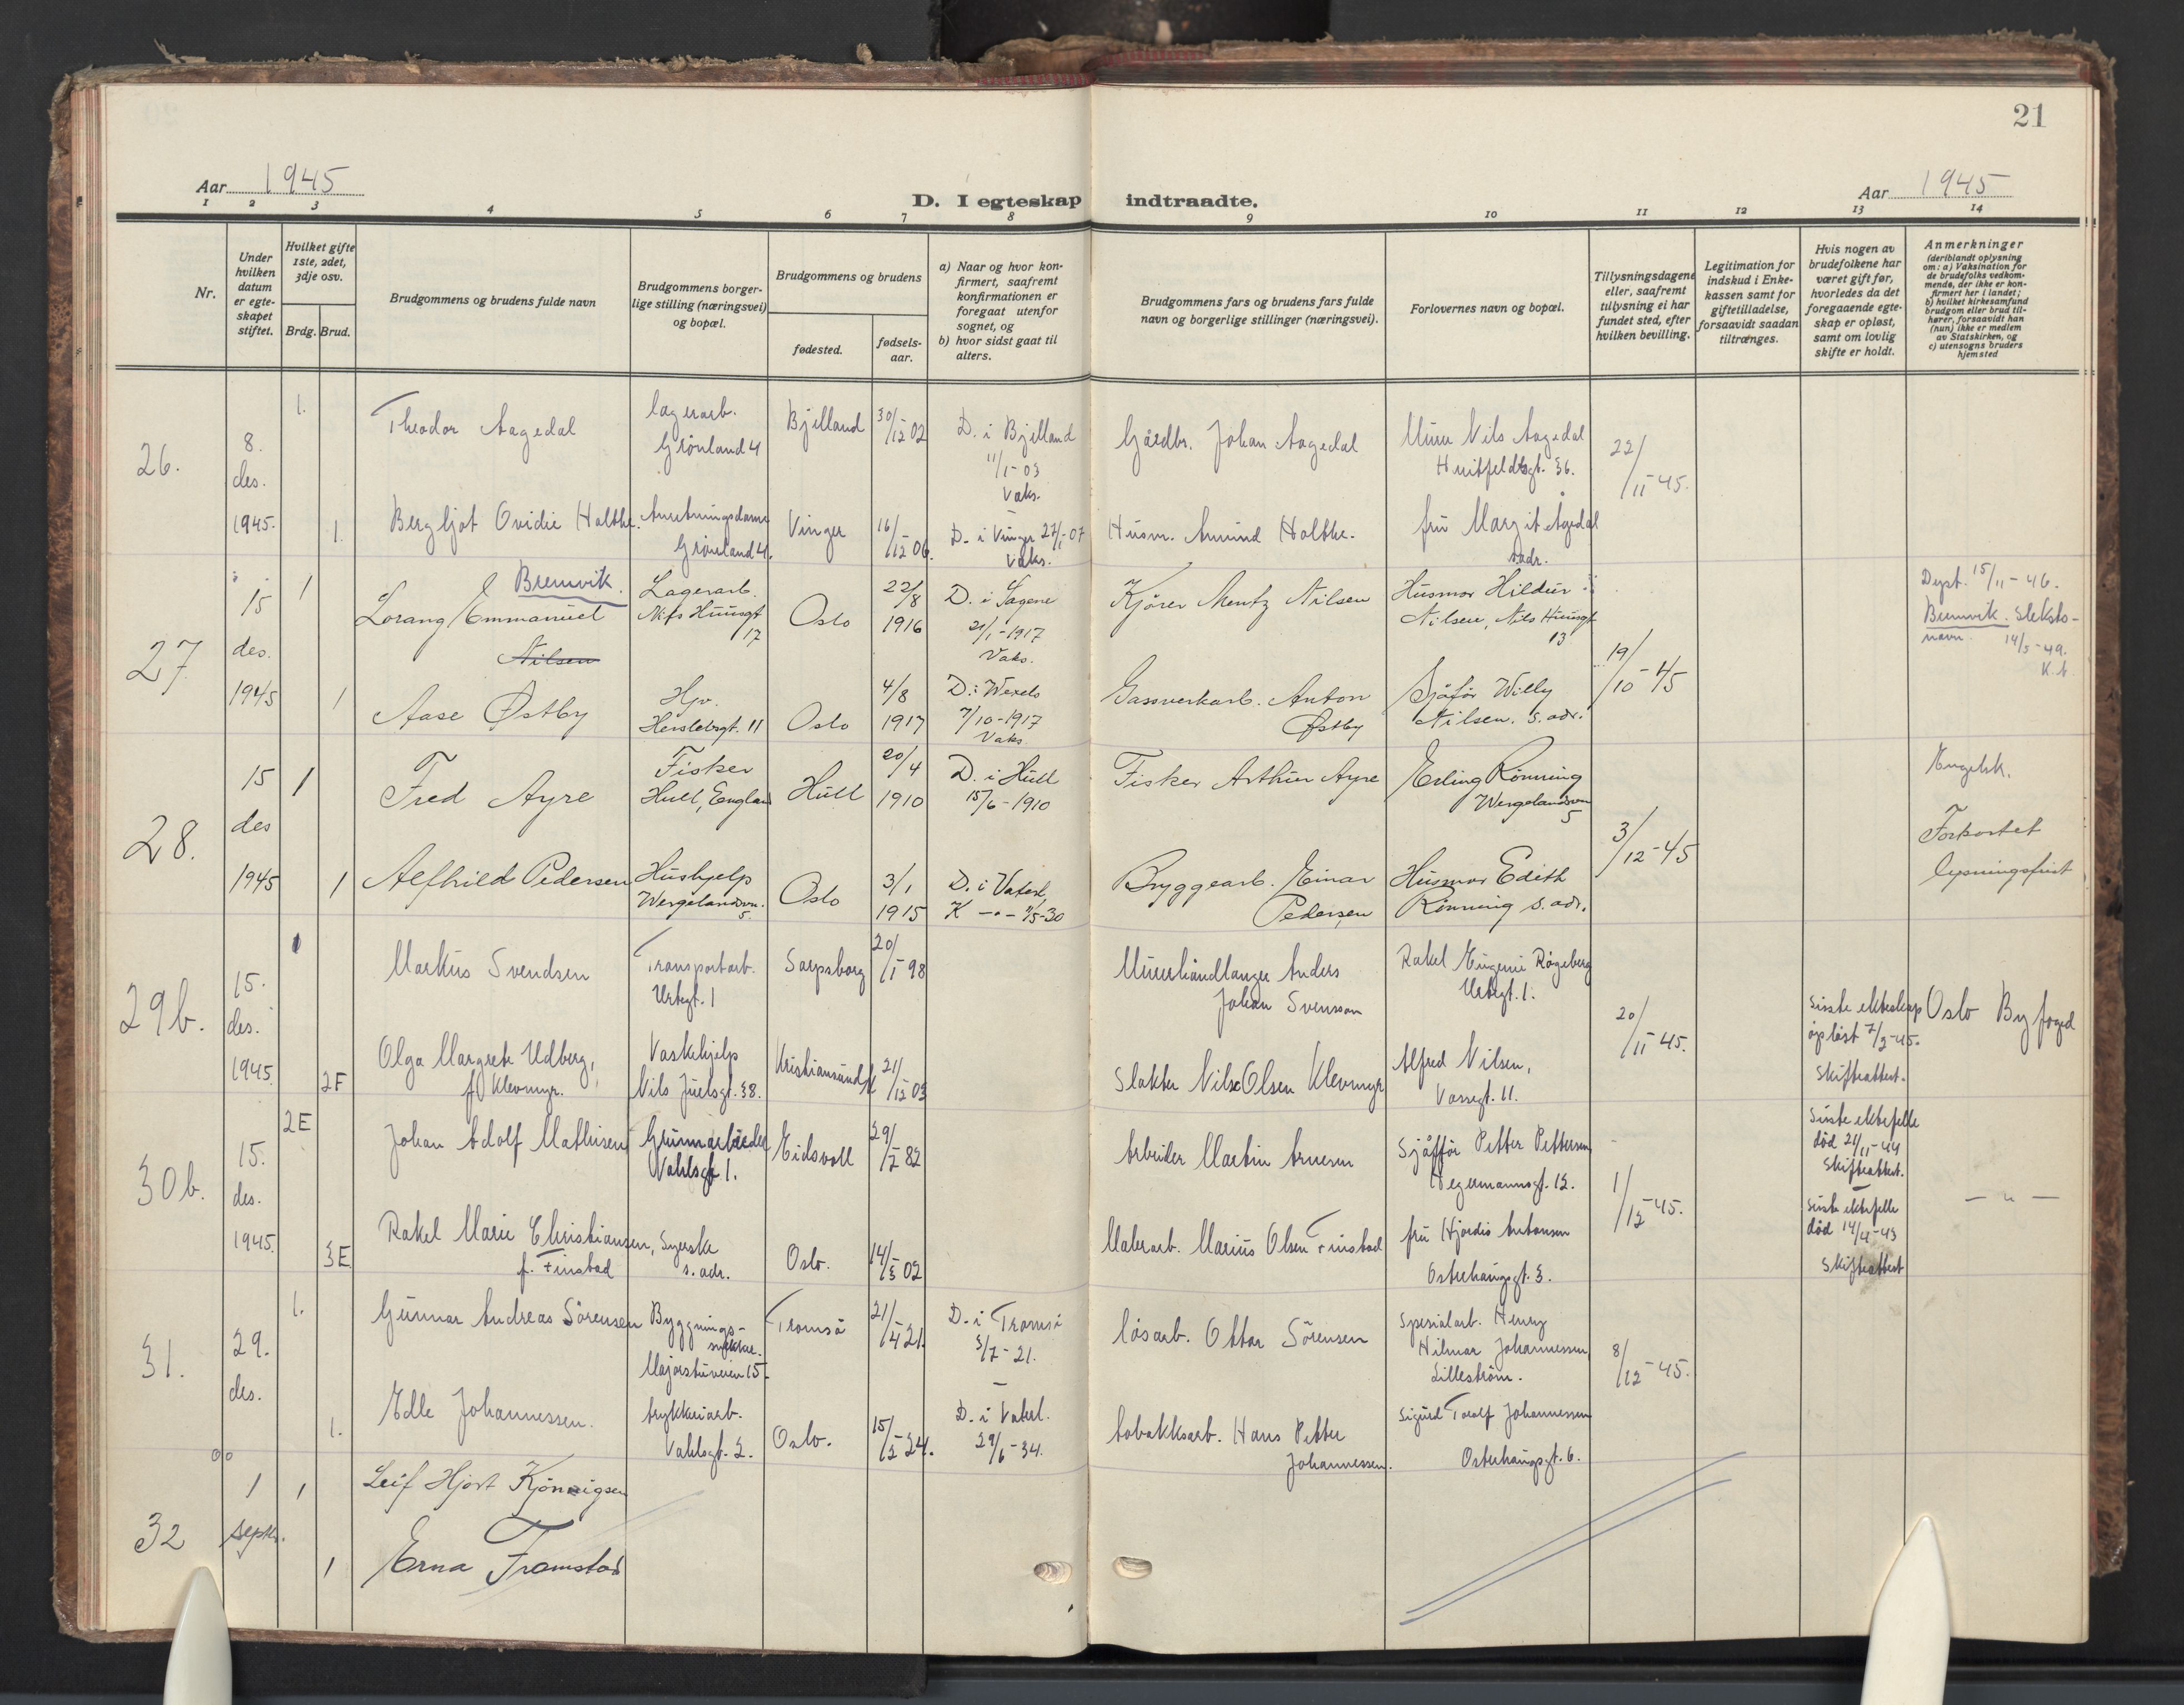 21
Aar 1945
D. I egteskap indtraadte.
Aar 1945
1 2 3 4 5 6 7 8 9 10 11 12 13 14
Nr.
Under hvilken datum er egteskapet stiftet.
Hvilket gifte 1ste, 2det, 3dje osv.
Brdg. Brud.
Brudgommens og brudens fulde navn
Brudgommens borgerlige stilling (næringsvei) og bopæl.
Brudgommens og brudens
fødested.
fødselsaar.
a) Naar og hvor konfirmert, saafremt konfirmationen er foregaat utenfor sognet, og
b) hvor sidst gaat til alters.
Brudgommens fars og brudens fars fulde navn og borgerlige stillinger (næringsvei).
Forlovernes navn og bopæl.
Tillysningsdagene eller, saafremt tillysning ei har fundet sted, efter hvilken bevilling.
Legitimation for indskud i Enkekassen samt for giftetilladelse, forsaavidt saadan tiltrænges.
Hvis nogen av brudefolkene har været gift før, hvorledes da det foregaaende egteskap er opløst, samt om lovlig skifte er holdt.
Anmerkninger (deriblandt oplysning om: a) Vaksination for de brudefolks vedkommende, der ikke er konfirmert her i landet; b) hvilket kirkesamfund brudgom eller brud tilhører, forsaavidt han (hun) ikke er medlem av Statskirken, og c) utensogns bruders hjemsted
26.
8. des. 1945.
1.
Theodor Aagedal
lagerarb. Grønland 4
Bjelland
30/12 02
D. i Bjelland 11/1-03 Vaks.
Gårdbr. Johan Aagedal
Murer Nils Aagedal Huitfeldtsgt. 36.
22/11-45.
1.
Bergljot Ovidie Holthe.
Anretningsdame Grønland 4.
Vinger
16/12 06.
D. i Vinger 27/1-07 Vaks.
Husm. Amund Holthe.
fru Margit Agedal s.adr.
27
15 des. 1945
1
Lorang Emmanuel Bremvik. Nilsen
Lagerarb. Nils Huusgt 17
Oslo
22/8 1916
D. i Sagene 21/1-1917 Vaks.
Kjører Mentz Nilsen
Husmor Hildur Nilsen, Nils Huusgt 13
19/10-45
Dypt. 15/11-46.
Bremvik. Slektsnavn. 14/5-49.
K.A.
1
Aase Østby
Hpv. Herslebsgt. 11
Oslo
4/8 1917
D. i Wexels 7/10-1917 Vaks
Gassverkarb. Anton Østby
Sjåfør Willy Nilsen. s. adr.
28.
15 des 1945
1
Fred Ayre
Fisker Hull, England
Hull
20/4 1910
D. i Hull 15/6-1910
Fisker Arthur Ayre
Erling Rønning Wergelandsvn 5
3/12-45
Engelsk.
Forkortet lysningsfrist
1
Alfhild Pedersen
Hushjelp Wergelandsvn. 5
Oslo
3/1 1915
D. i Vaterl, K -"- 11/5-30
Bryggearb. Einar Pedersen
Husmor Edith Rønning s. adr.
29b.
15. des. 1945.
1
Markus Svendsen
Transportarb. Urtegt. 1
Sarpsborg
20/1 98
Murerhåndlanger Anders Johan Svensson
Rakel Eugenie Røgeberg Urtegt. 1.
20/11-45.
Siste ekteskap oppløst 7/2-45. Skifteattest.
Oslo Byfoged
2F
Olga Margrete Udberg, f. Klevmyr.
Vaskehjelp Nils Juelsgt. 38.
Kristiansund N
21/12 03
Slakter Nils Olsen Klevmyr
Alfred Nilsen, Vossegt. 11.
30b.
15. des. 1945.
2E
Johan Adolf Mathisen
Grunnarbeider Vahlsgt 1.
Eidsvoll
29/7 82
Arbeider Martin Arnesen
Sjåffør Petter Pettersen Hegermannsgt. 12.
1/12-45.
Siste ektefelle død 21/11-44 Skifteattest.
3E
Rakel Marie Christiansen, f. Finstad
Syerske s. adr.
Oslo.
14/3 02
Malerarb. Marius Olsen Finstad
fru Hjørdis Antonsen Osterhausgt. 3.
Siste ektefelle død 14/4-43 Skifteattest
- " -
31.
29. des.
1.
Gunnar Andreas Sørensen
Byggningssnekker. Majorstuveien 15.
Tromsø
21/4 21.
D. i Tromsø 3/7-21.
løsarb. Ottar Sørensen
Spesialarb. Henry Hilmar Johannessen, Lillestrøm.
8/12-45.
1.
Edle Johannessen.
trykkeriarb. Vahlsgt. 2.
Oslo.
15/2 24.
D. i Vaterl. 29/6-34.
tobakksarb. Hans Petter Johannessen.
Sigurd Torolf Johannessen Osterhausgt. 6.
32
1 septbr.
1
Leif Hjort Kjønnigsen
1
Erna Tramstad